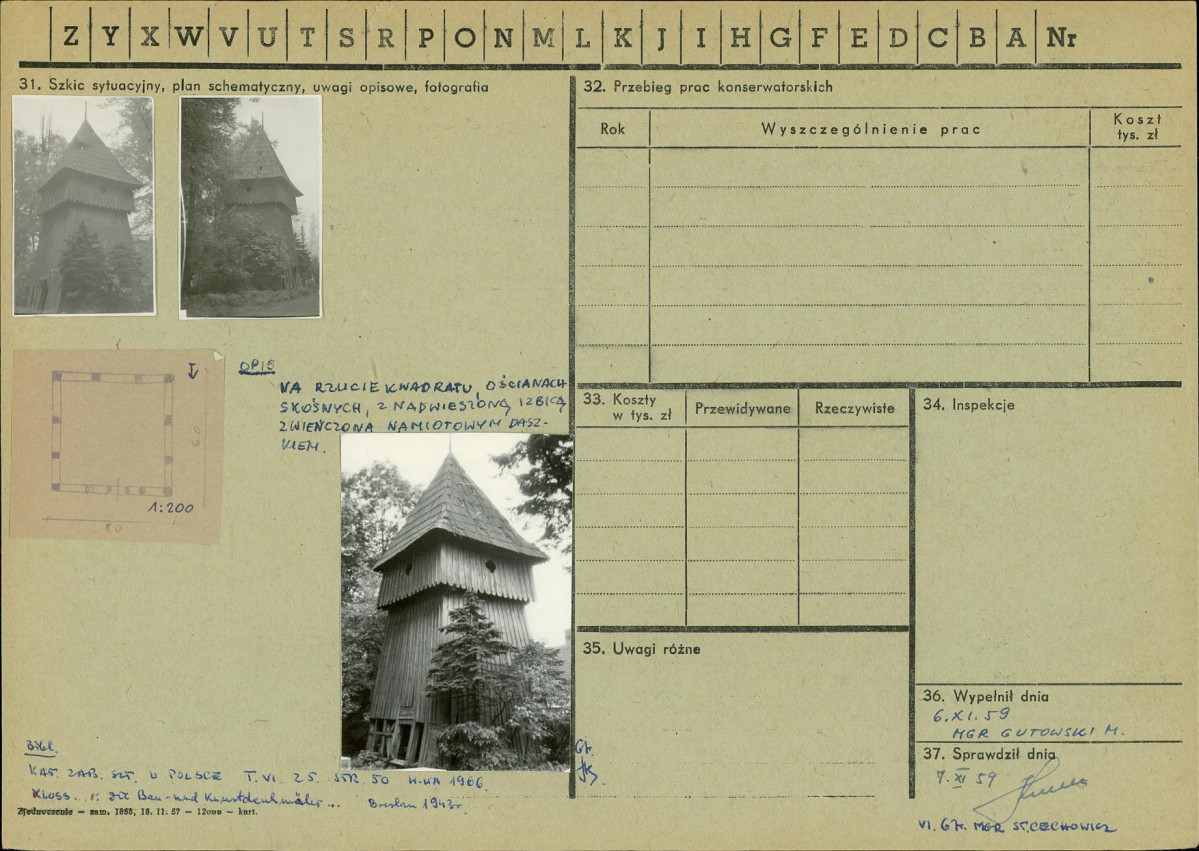 Z Y X W V U T S R P O N M L K J I H G F E D C B A Nr
31. Szkic sytuacyjny, plan schematyczny, uwagi opisowe, fotografia
OPIS
NA RZUCIE KWADRATU, O ŚCIANACH
SKOŚNYCH, Z NADWIESZONĄ IZBICĄ
ZWIEŃCZONA NAMIOTOWYM DASZ-
KIEM.
60
1:200
80
Bibl.
KAT. ZAB. SZT. W POLSCE T. VI. Z 5. STR. 50 W-WA 1966
KLOSS... Die Bau- und Kunstdenkmäler... Breslau 1943r.
Zjednoczenie — zam. 1858, 18. 11. 57 — 12000 — kart.
32. Przebieg prac konserwatorskich
Rok
Wyszczególnienie prac
Koszt
tys. zł
33. Koszty
w tys. zł
Przewidywane
Rzeczywiste
34. Inspekcje
35. Uwagi różne
67.
36. Wypełnił dnia
6.XI.59
MGR GUTOWSKI M.
37. Sprawdził dnia
7.XI 59
VI. 67r. MGR ST. CECHOWICZ